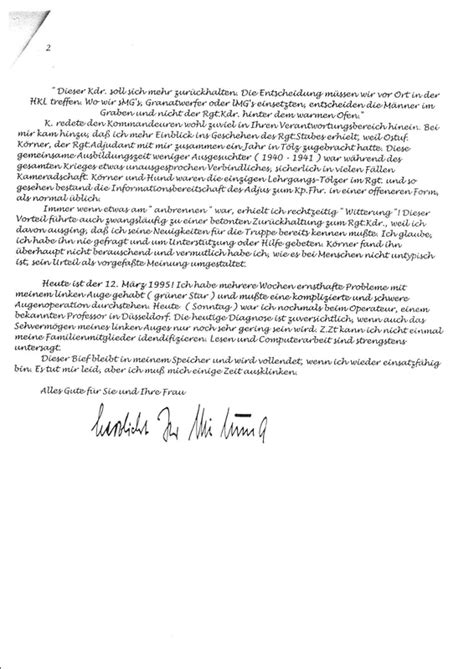 2
"Dieser Kdr. soll sich mehr zurückhalten. Die Entscheidung müssen wir vor Ort in der
HKL treffen. Wo wir sMG's, Granatwerfer oder lMG's einsetzten, entscheiden die Männer im
Graben und nicht der Rgt.Kdr. hinter dem warmen Ofen."
K. redete den Kommandeuren wohl zuviel in Ihren Verantwortungsbereich hinein. Bei
mir kam hinzu, daß ich mehr Einblick ins Geschehen des Rgt.Stabes erhielt, weil Ostuf.
Körner, der Rgt.Adjudant mit mir zusammen ein Jahr in Tölz zugebracht hatte. Diese
gemeinsame Ausbildungszeit weniger Ausgesuchter ( 1940 - 1941 ) war während des
gesamten Krieges etwas unausgesprochen Verbindliches, sicherlich in vielen Fällen
Kameradschaft. Körner und Hund waren die einzigen Lehrgangs-Tölzer im Rgt. und so
gesehen bestand die Informationsbereitschaft des Adjus zum Kp.Fhr. in einer offeneren Form,
als normal üblich.
Immer wenn etwas am " anbrennen " war, erhielt ich rechtzeitig " Witterung "! Dieser
Vorteil führte auch zwangsläufig zu einer betonten Zurückhaltung zum Rgt.Kdr., weil ich
davon ausging, daß ich seine Neuigkeiten für die Truppe bereits kennen mußte. Ich glaube,
ich habe ihn nie gefragt und um Unterstützung oder Hilfe gebeten. Körner fand ihn
überhaupt nicht berauschend und vermutlich habe ich, wie es bei Menschen nicht untypisch
ist, sein Urteil als vorgefaßte Meinung umgestaltet.
Heute ist der 12. März 1995! Ich habe mehrere Wochen ernsthafte Probleme mit
meinem linken Auge gehabt ( grüner Star ) und mußte eine komplizierte und schwere
Augenoperation durchstehen. Heute ( Sonntag ) war ich nochmals beim Operateur, einem
bekannten Professor in Düsseldorf. Die heutige Diagnose ist zuversichtlich, wenn auch das
Sehvermögen meines linken Auges nur noch sehr gering sein wird. Z.Zt kann ich nicht einmal
meine Familienmitglieder idendifizieren. Lesen und Computerarbeit sind strengstens
untersagt.
Dieser Bief bleibt in meinem Speicher und wird vollendet, wenn ich wieder einsatzfähig
bin. Es tut mir leid, aber ich muß mich einige Zeit ausklinken.
Alles Gute für Sie und Ihre Frau
herzlichst Ihr